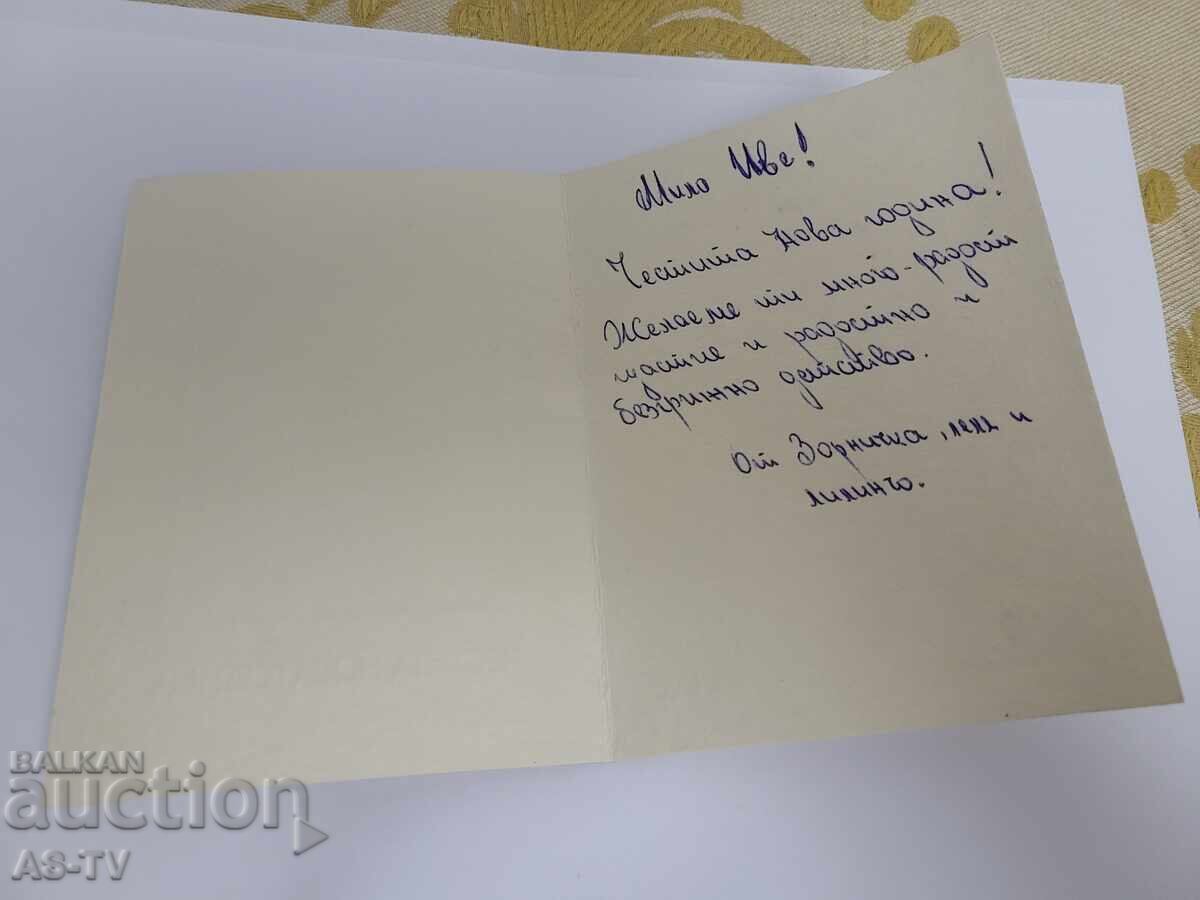 Мило Иве!
Честита Нова година!
Желаеме ти много-радост
щастие и радостно и
безгрижно детство.
От Зорничка, лели и
лилинчо.
BALKAN
auction
AS-TV